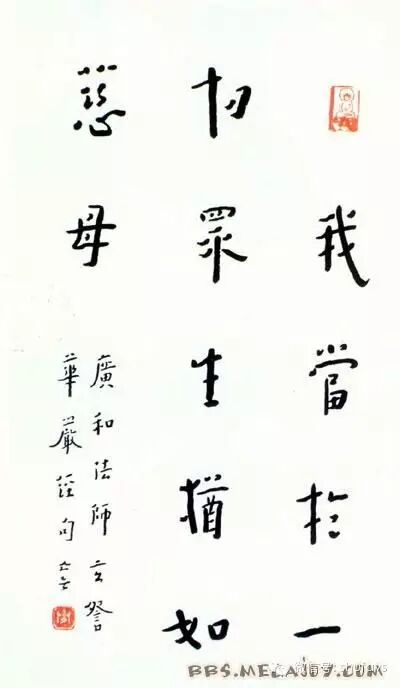 我當於一
切眾生猶如
慈母
廣和法師玄詧
華嚴經句亡言
BBS.MELAJOY.COM
微信号: